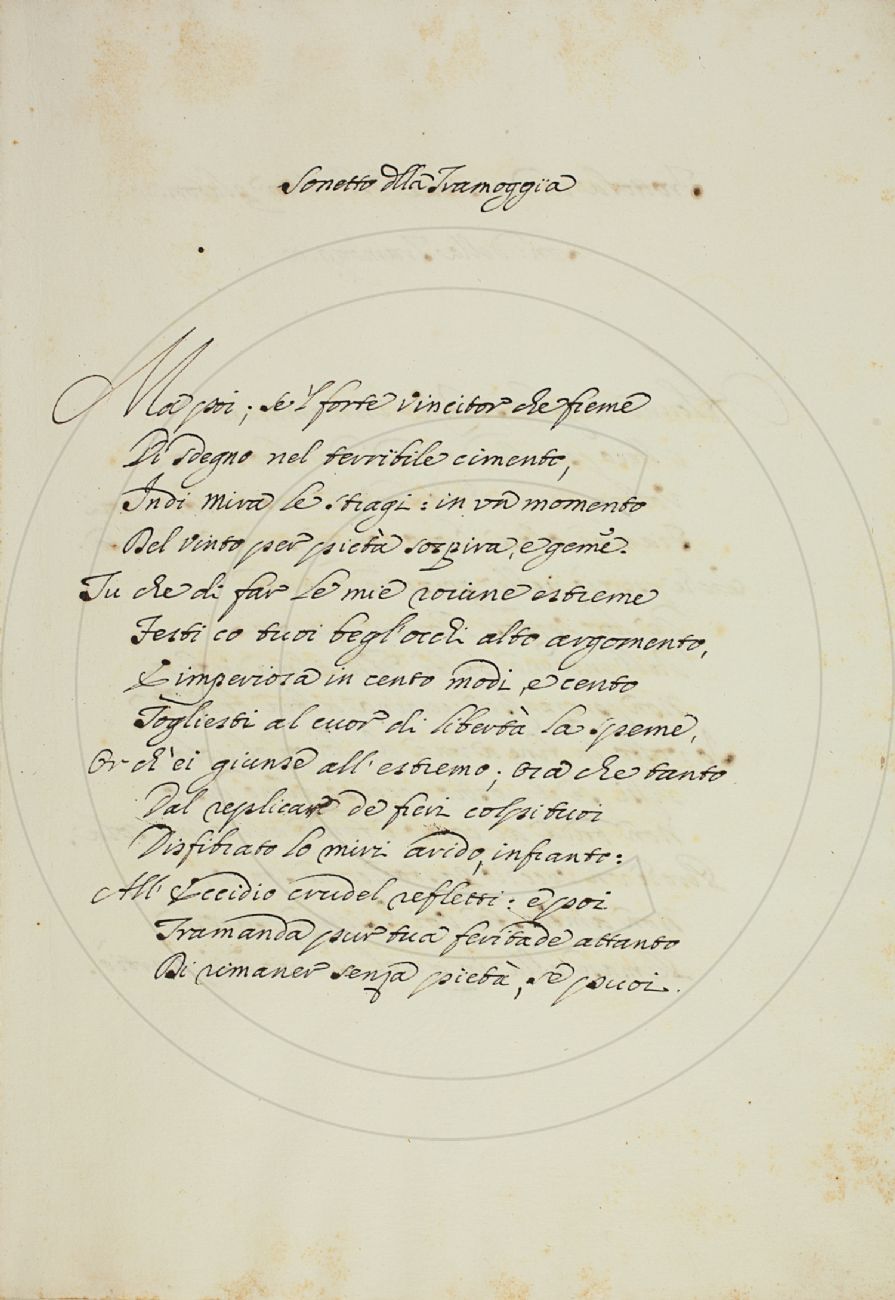 Sonetto dlla Tramoggia
Ma poi; se 'l forte vincitor che freme
Di sdegno nel terribile cimento,
Indi mira le stragi: in vn momento
Del vinto per pietà sospira, e geme.
Tu che di far le mie rovine estreme
Festi co tuoi begl'occhi alto argomento,
E imperiosa in cento modi, e cento
Togliesti al cuor di libertà la speme,
Or ch'ei giunse all'estremo; ora che tanto
Dal replicar de fieri colpi tuoi
Disfibrato lo miri arido, infranto:
All' Eccidio crudel refletti: e poi
Tramanda pur tua feritade attanto
Di rimaner senza pietà, se puoi.